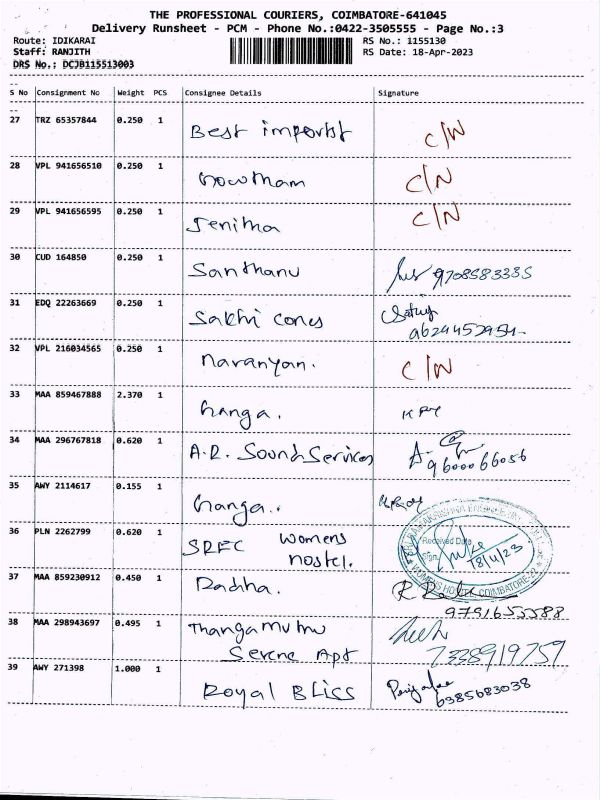 THE PROFESSIONAL COURIERS, COIMBATORE-641045
Delivery Runsheet - PCM - Phone No.:0422-3505555 - Page No.:3
Route: IDIKARAI RS No.: 1155130
Staff: RANJITH RS Date: 18-Apr-2023
DRS No.: DCJB115513003
S No Consignment No Weight PCS Consignee Details Signature
27 TRZ 65357844 0.250 1 Best import C/N
28 VPL 941656510 0.250 1 Gowtham C/N
29 VPL 941656595 0.250 1 Jenitha C/N
30 CUD 164850 0.250 1 Santhanu 9708583335
31 EDQ 22263669 0.250 1 Sakhi cones
32 VPL 216034565 0.250 1 Naranyan. C/N
33 MAA 859467888 2.370 1 Ganga.
34 MAA 296767818 0.620 1 A.R. Sound Services 9600066056
35 AWY 2114617 0.155 1 Ganga..
36 PLN 2262799 0.620 1 SREC womens
hostel.
Received Date
Sign. 18/4/23
WOMEN'S HOSTEL COIMBATORE-22
37 MAA 859230912 0.450 1 Radha. R
9791655588
38 MAA 298943697 0.495 1 Thangamuthu
Serene Apt 7338919759
39 AWY 271398 1.000 1 Royal Bliss 6385683038